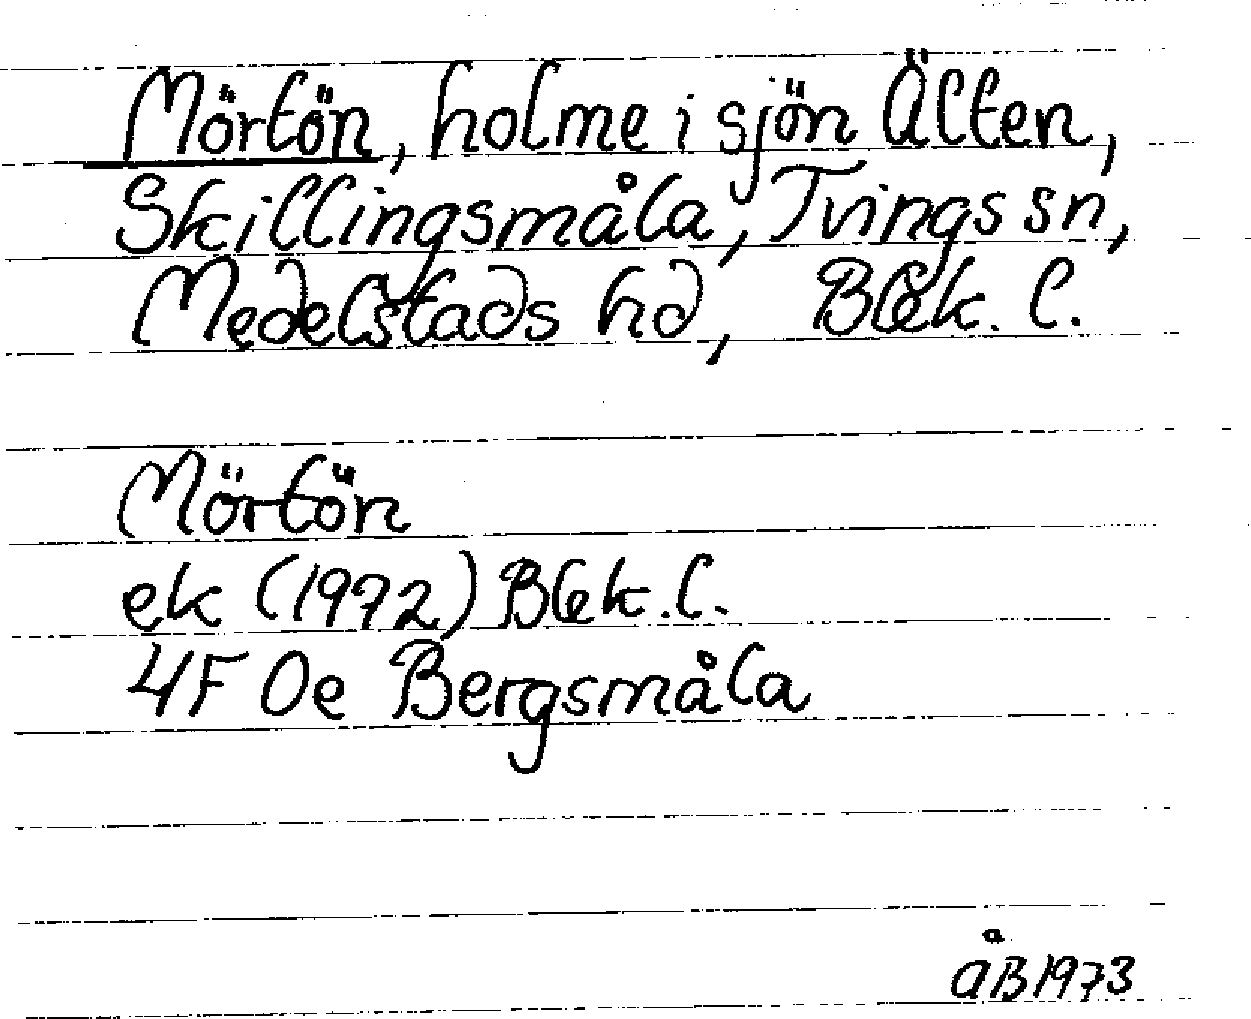 Mörtön, holme i sjön Älten,
Skillingsmåla, Tvings sn,
Medelstads hd, Blek. l.
Mörtön
ek (1972) Blek. l.
4F 0e Bergsmåla
ÅB 1973